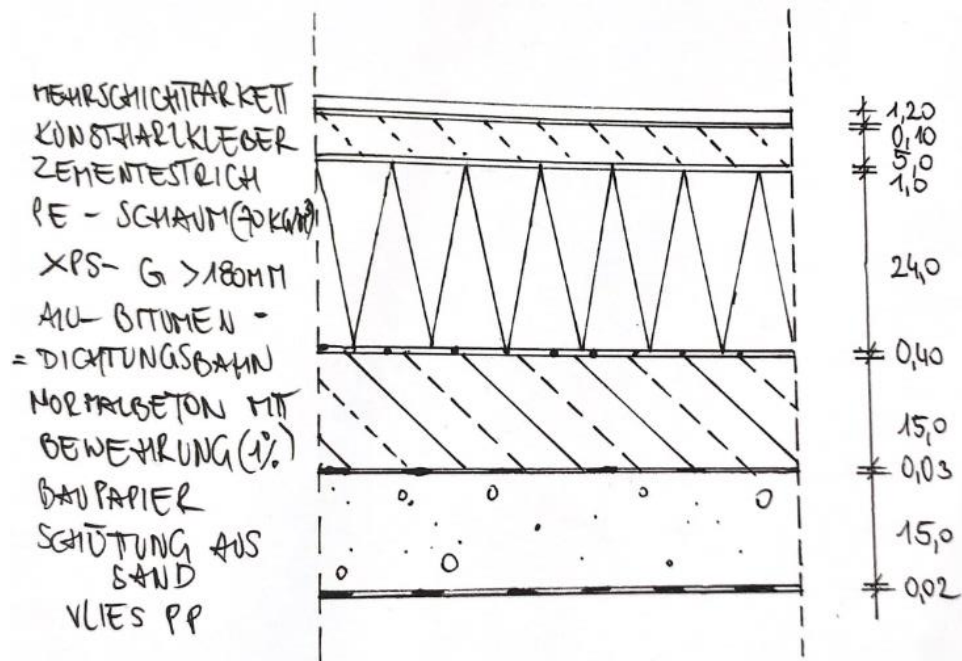 MEHRSCHICHTPARKETT
KUNSTHARZKLEBER
ZEMENTESTRICH
PE - SCHAUM (70KG/M³)
XPS- G >180MM
ALU- BITUMEN -
= DICHTUNGSBAHN
NORMALBETON MIT
BEWEHRUNG (1%)
BAUPAPIER
SCHÜTTUNG AUS
SAND
VLIES PP
1,20
0,10
5,0
1,0
24,0
0,40
15,0
0,03
15,0
0,02